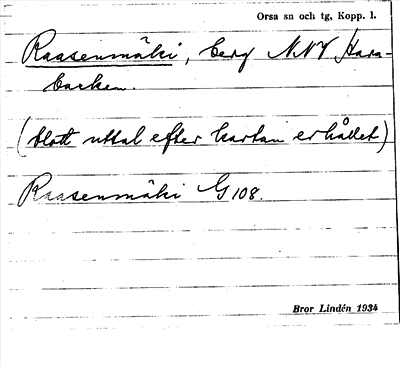 Orsa sn och tg, Kopp. l.
Raasenmäki, berg NNV Hara-
backen.
(blott uttal efter kartan erhållet)
Raasenmäki G 108.
Bror Lindén 1934